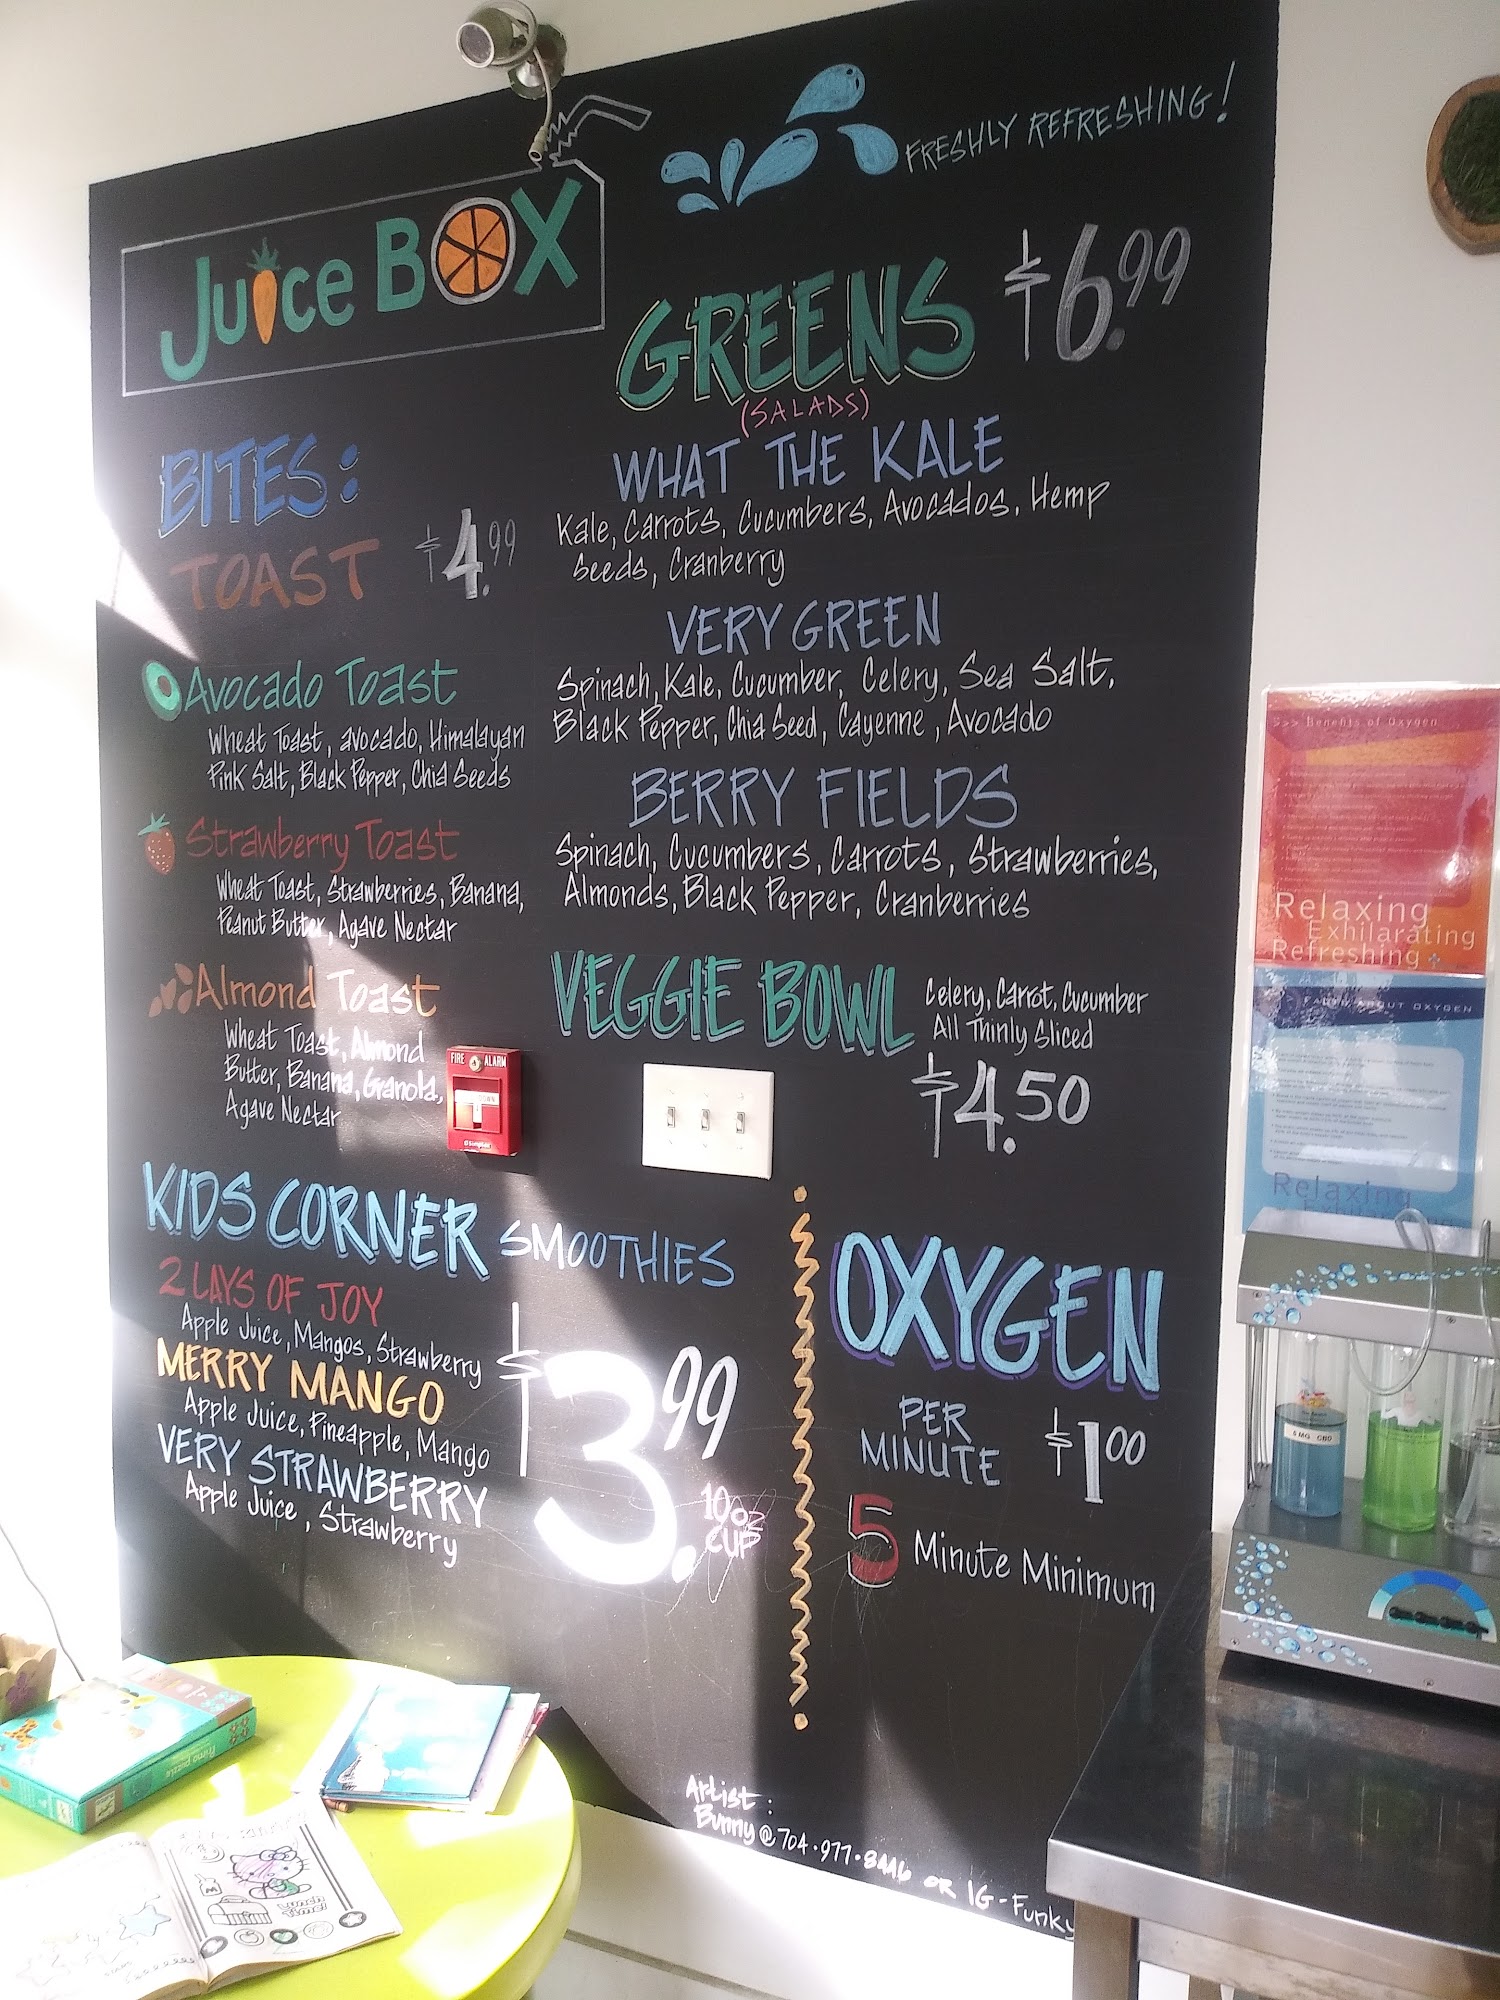 Juice BOX
FRESHLY REFRESHING!
BITES:
TOAST $4.99
Avocado Toast
Wheat Toast, avocado, Himalayan
Pink Salt, Black Pepper, Chia Seeds
Strawberry Toast
Wheat Toast, Strawberries, Banana,
Peanut Butter, Agave Nectar
Almond Toast
Wheat Toast, Almond
Butter, Banana, Granola,
Agave Nectar
GREENS $6.99
(SALADS)
WHAT THE KALE
Kale, Carrots, Cucumbers, Avocados, Hemp
Seeds, Cranberry
VERY GREEN
Spinach, Kale, Cucumber, Celery, Sea Salt,
Black Pepper, Chia Seed, Cayenne, Avocado
BERRY FIELDS
Spinach, Cucumbers, Carrots, Strawberries,
Almonds, Black Pepper, Cranberries
VEGGIE BOWL
Celery, Carrot, Cucumber
All Thinly Sliced
$4.50
FIRE ALARM
KIDS CORNER SMOOTHIES
2 LAYS OF JOY
Apple Juice, Mangos, Strawberry
MERRY MANGO
Apple Juice, Pineapple, Mango
VERY STRAWBERRY
Apple Juice, Strawberry
$3.99
10oz
CUP
OXYGEN
PER
MINUTE
$1.00
5 Minute Minimum
Artist:
Bunny @ 704.977.8446 or IG-Funky
>>> Benefits of Oxygen
Relaxing
Exhilarating
Refreshing
FACTS ABOUT OXYGEN
Relaxing
5 MG CBD
LUNCH
TIME!